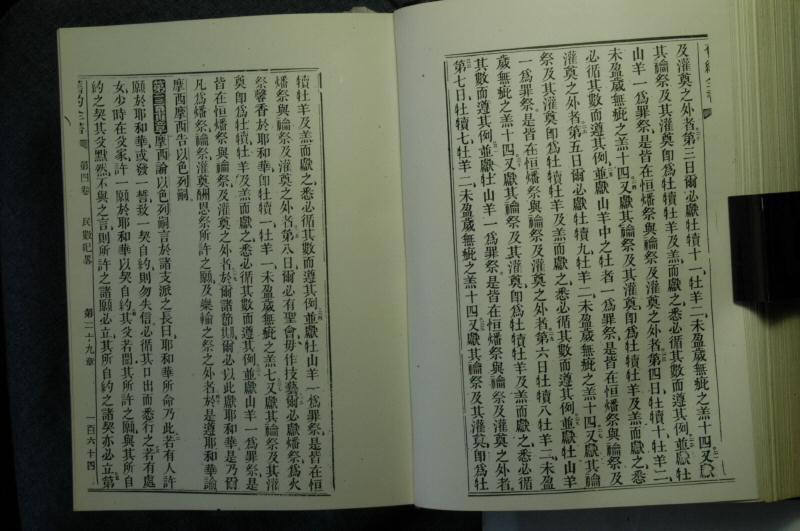 及灌奠之外者第三日爾必獻牡犢十一牡羊二未盈歲無疵之羔十四又獻
其禴祭及其灌奠卽爲牡犢牡羊及羔而獻之悉必循其數而遵其例並獻牡
山羊一爲罪祭是皆在恒燔祭與禴祭及灌奠之外者第四日牡犢十牡羊二
未盈歲無疵之羔十四又獻其禴祭及其灌奠卽爲牡犢牡羊及羔而獻之悉
必循其數而遵其例並獻山羊中之牡者一爲罪祭是皆在恒燔祭與禴祭及
灌奠之外者第五日爾必獻牡犢九牡羊二未盈歲無疵之羔十四又獻其禴
祭及其灌奠卽爲牡犢牡羊及羔而獻之悉必循其數而遵其例並獻牡山羊
一爲罪祭是皆在恒燔祭與禴祭及灌奠之外者第六日牡犢八牡羊二未盈
歲無疵之羔十四又獻其禴祭及其灌奠卽爲牡犢牡羊及羔而獻之悉必循
其數而遵其例並獻牡山羊一爲罪祭是皆在恒燔祭與禴祭及灌奠之外者
第七日牡犢七牡羊二未盈歲無疵之羔十四又獻其禴祭及其灌奠卽爲牡
犢牡羊及羔而獻之悉必循其數而遵其例並獻牡山羊一爲罪祭是皆在恒
燔祭與禴祭及灌奠之外者第八日爾必有聖會毋作技藝爾必獻燔祭爲火
祭馨香於耶和華卽牡犢一牡羊一未盈歲無疵之羔七又獻其禴祭及其灌
奠悉卽爲牡犢牡羊及羔而獻之悉必循其數而遵其例並獻山羊一爲罪祭是
皆在恒燔祭與禴祭及灌奠之外者於爾諸節期爾必以此獻耶和華是乃爾
凡爲燔祭禴祭灌奠酬恩祭所許之願及樂輸之祭之外者於是遵耶和華諭
摩西摩西告以色列嗣
第三十章摩西論以色列嗣言於諸支派之長曰耶和華所命乃此若有人許
願於耶和華或發一誓致一契自約則勿失信必循其口出而悉行之若有處
女少時在父家許一願於耶和華以契自約其父若聞其所許之願與其所自
約之契其父默然不與之言則所許之諸願必立其所自約之諸契亦必立第
舊約全書 第四卷 民數紀畧 第二十九章 一百六十四